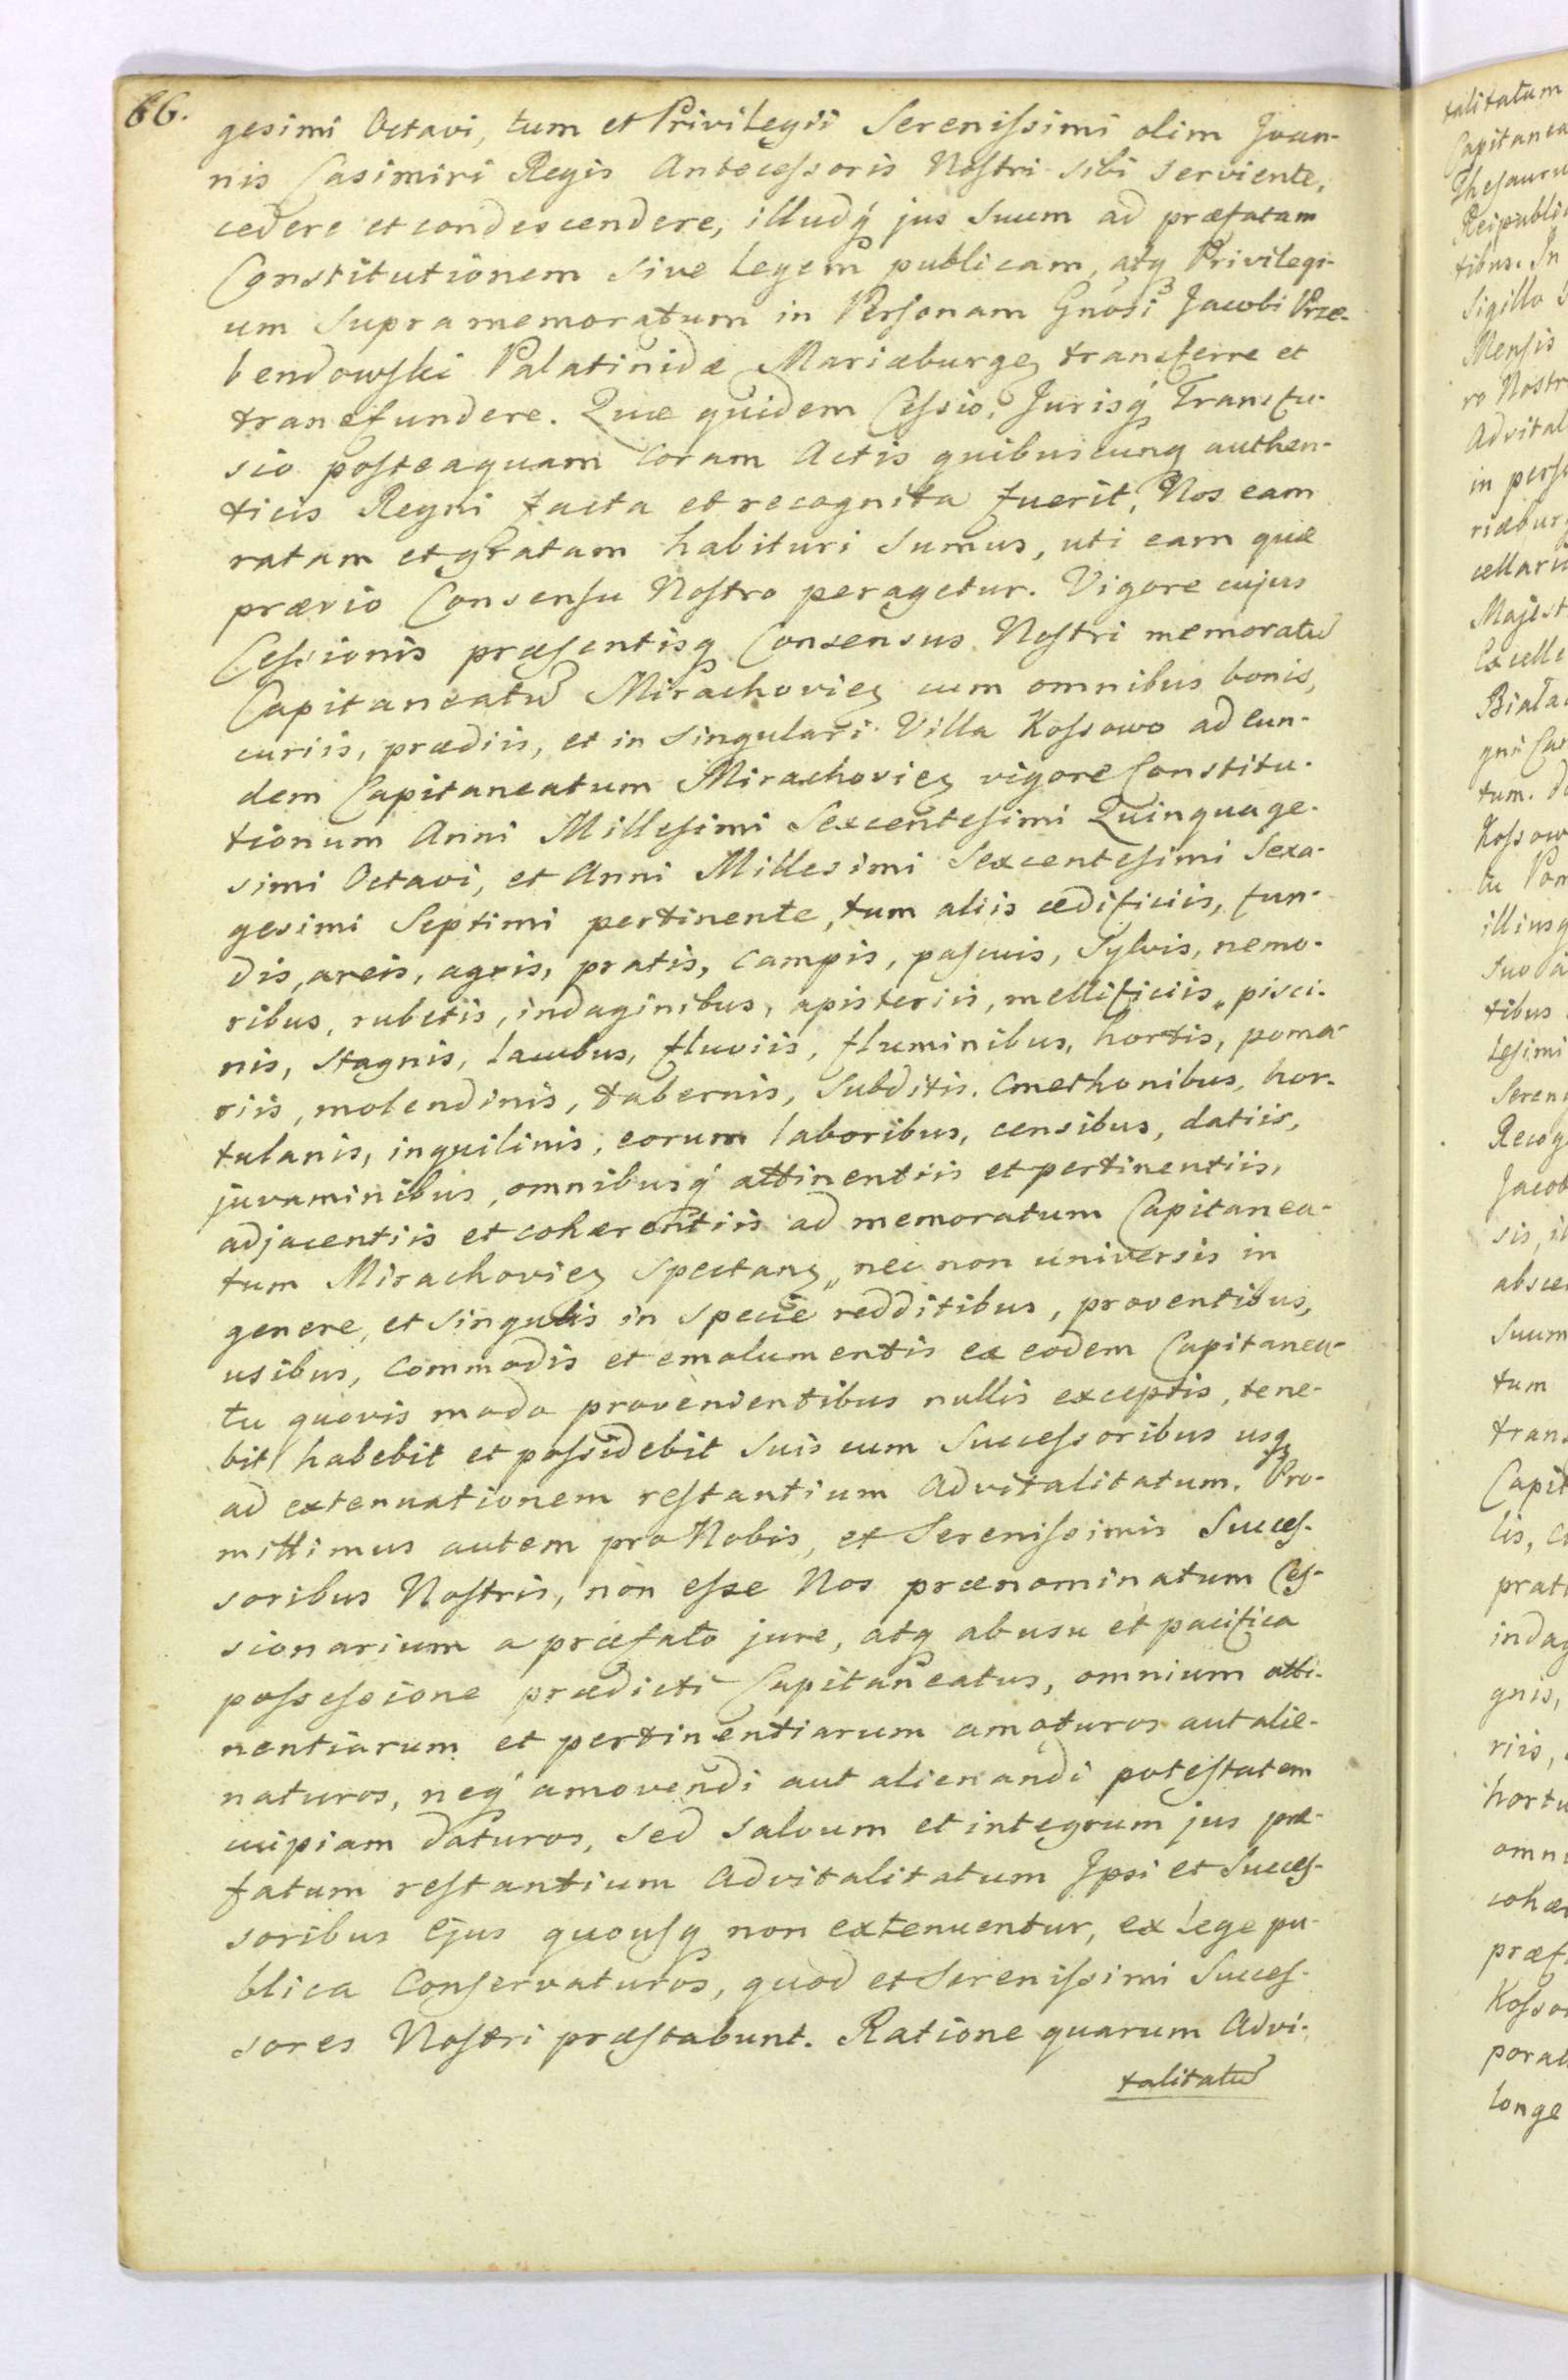 66.
gesimi Octavi, tum et Privilegii Serenissimi olim Joan-
nis Casimiri Regis Antecessoris Nostri sibi serviente,
cedere et condescendere, illudq́ jus suum ad præfatam
Constitutionem sive legem publicam, atq Privilegi-
um supra memoratum in Personam Gnosi Jacobi Prze-
bendowski Palatinidæ Mariæburgeꝫ transferre et
transfundere. Quæ quidem Cessio, Jurisq́ Transfu-
sio posteaquam coram Actis quibuscunq authen-
ticis Regni facta et recognita fuerit, Nos eam
ratam et gratam habituri sumus, uti eam quæ
prævio Consensu Nostro peragetur. Vigore cujus
Cessionis præsentisq Consensus Nostri memoratũ
Capitaneatũ Mirachovieꝫ cum omnibus bonis,
curiis, prædiis, et in singulari Villa Kossowo ad eun-
dem Capitaneatum Mirachovieꝫ vigore Constitu-
tionum Anni Millesimi Sexcentesimi Quinquage-
simi Octavi, et Anni Millesimi Sexcentesimi Sexa-
gesimi Septimi pertinente, tum aliis ædificiis, fun-
dis, areis, agris, pratis, campis, pascuis, sylvis, nemo-
ribus, rubetis, indaginibus, apisteriis, mellificiis, pisci-
nis, stagnis, lacubus, fluviis, fluminibus, hortis, poma-
riis, molendinis, tabernis, subditis, cmethonibus, hor-
tulanis, inquilinis, eorum laboribus, censibus, datiis,
juvaminibus, omnibusq́ attinentiis et pertinentiis,
adjacentiis et cohærentiis ad memoratum Capitanea-
tum Mirachovieꝫ spectanꝫ, nec non universis in
genere, et singulis in specie redditibus, proventibus,
usibus, commodis et emolumentis ex eodem Capitanea-
tu quovis modo provenientibus nullis exceptis, tene-
bit, habebit et possidebit suis cum successoribus usq
ad extenuationem restantium advitalitatum. Pro-
mittimus autem pro Nobis, et Serenissimis Succes-
soribus Nostris, non esse Nos prænominatum Ces-
sionarium a præfato jure, atq ab usu et pacifica
possessione prædicti Capitaneatus, omnium atti-
nentiarum et pertinentiarum amoturos aut alie-
naturos, neq́ amovendi aut alienandi potestatem
cuipiam daturos, sed salvum et integrum jus præ-
fatum restantium Advitalitatum Ipsi et Succes-
soribus Ejus quousq non extenuentur, ex lege pu-
blica conservaturos, quod et Serenissimi Succes-
sores Nostri præstabunt. Ratione quarum Advi-
talitatũ
talitatum
Capitanea
Thesauru
Reipubli
tibus. In
Sigillo
Mensis
ro Nostr
Advital
in perso
riæbur
cellari
Majest
Excelle
Biała
gni
tum.
Kossow
tu Pom
illiusq
suo
tibus
lesimi
Seren
Recog
Jacob
sis,
absce
suum
tum
trans
Capit
lis,
prati
indag
gnis,
riis,
hortu
omni
cohær
præf
Kosso
poral
longe